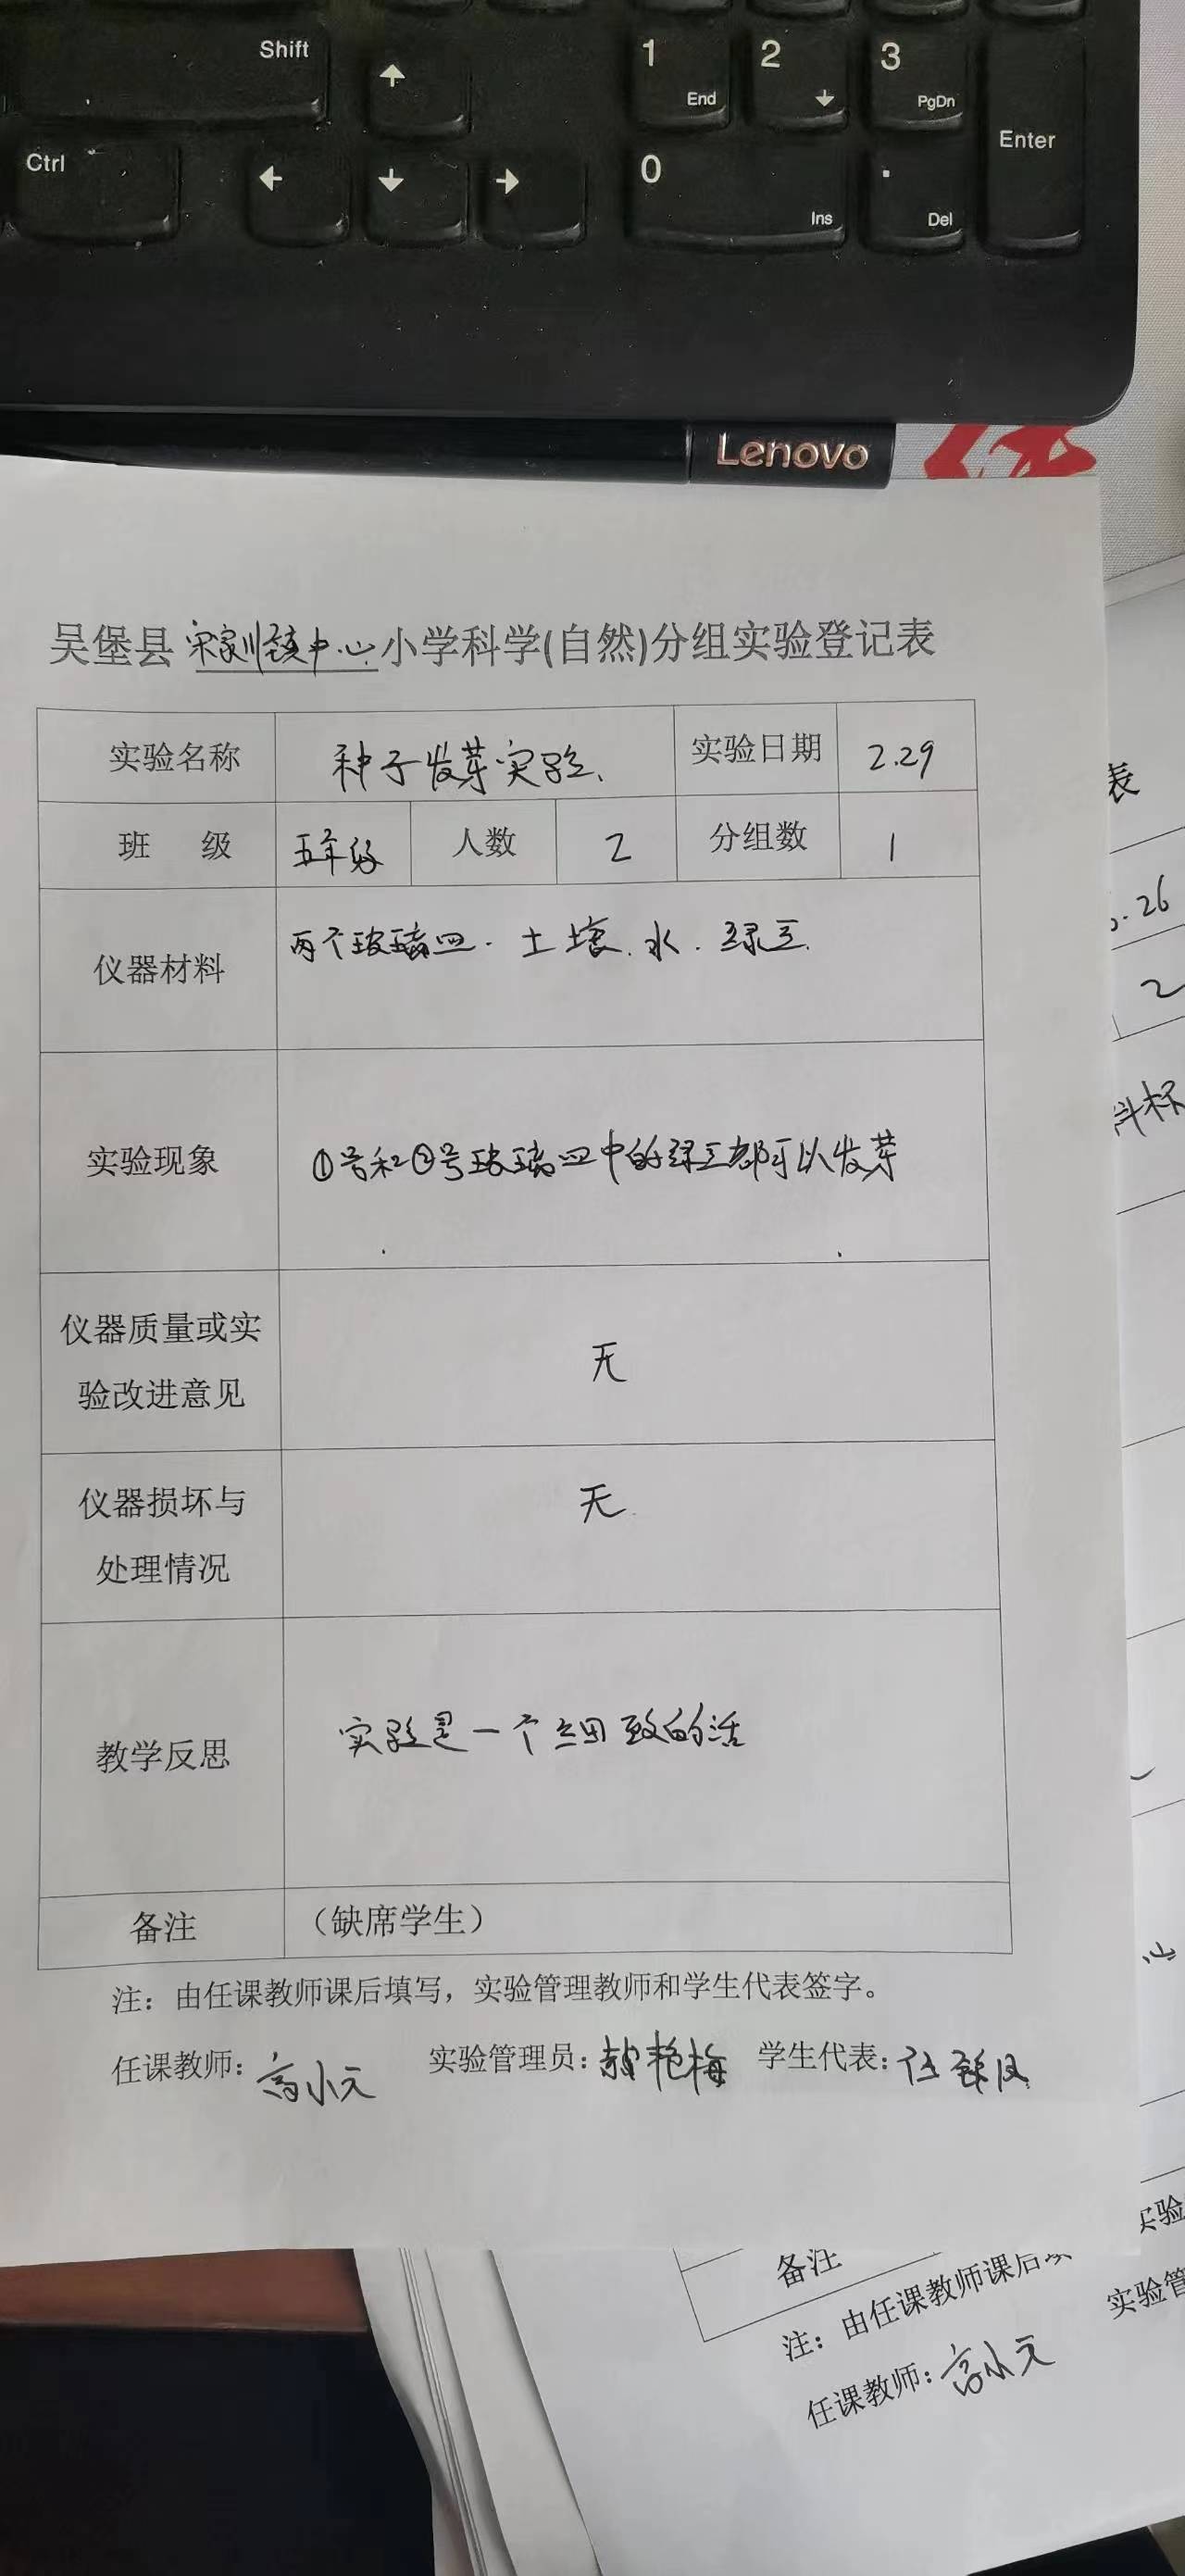 Shift
1 End
2
3 PgDn
Enter
Ctrl
0 Ins
. Del
Lenovo
吴堡县宋家川镇中心小学科学(自然)分组实验登记表
实验名称 种子发芽实验. 实验日期 2.29
班 级 五年级 人数 2 分组数 1
仪器材料 两个玻璃皿.土壤.水.绿豆.
实验现象 ①号和②号玻璃皿中的绿豆都可以发芽
仪器质量或实
验改进意见 无
仪器损坏与
处理情况 无
教学反思 实验是一个细致的活
备注 (缺席学生)
注: 由任课教师课后填写，实验管理教师和学生代表签字。
任课教师: 高小元 实验管理员: 艳梅 学生代表: 任
表
.26
2
备注
注: 由任课教师课后填
任课教师: 高小元
实验管
实验